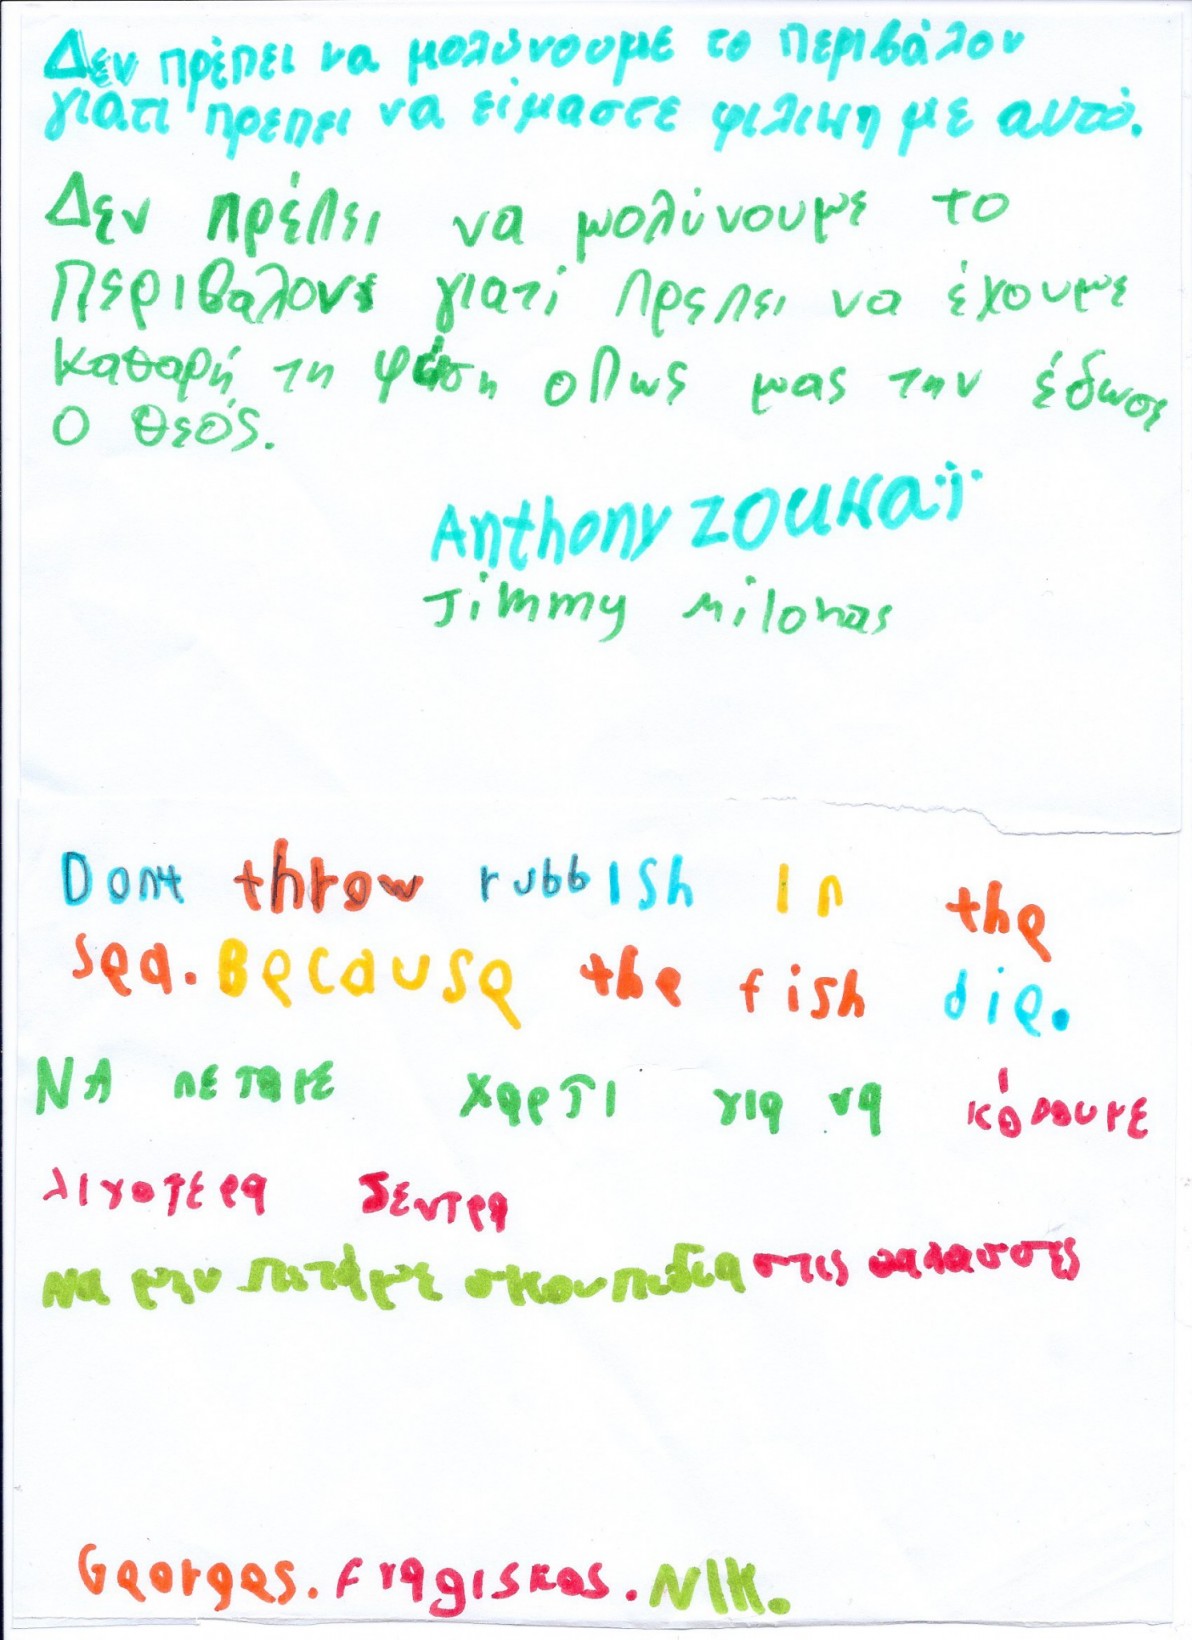 Δεν πρέπει να μολύνουμε το περιβάλον
γιατι πρεπει να είμαστε φιλικη με αυτό.
Δεν πρέπει να μολύνουμε το
περιβαλον γιατί πρεπει να έχουμε
καθαρή τη φύση οπως μας την έδωσε
ο θεός.
Anthony ZOUKaï
Jimmy Milonas
Dont throw rubbish in the
sea. Because the fish die.
ΝΑ πεταμε χαρτι για να κόβουμε
λιγοτερα δεντρα
Να μην πετάμε σκουπιδια στις θαλασσες
Georges. Fragiskos. NIK.